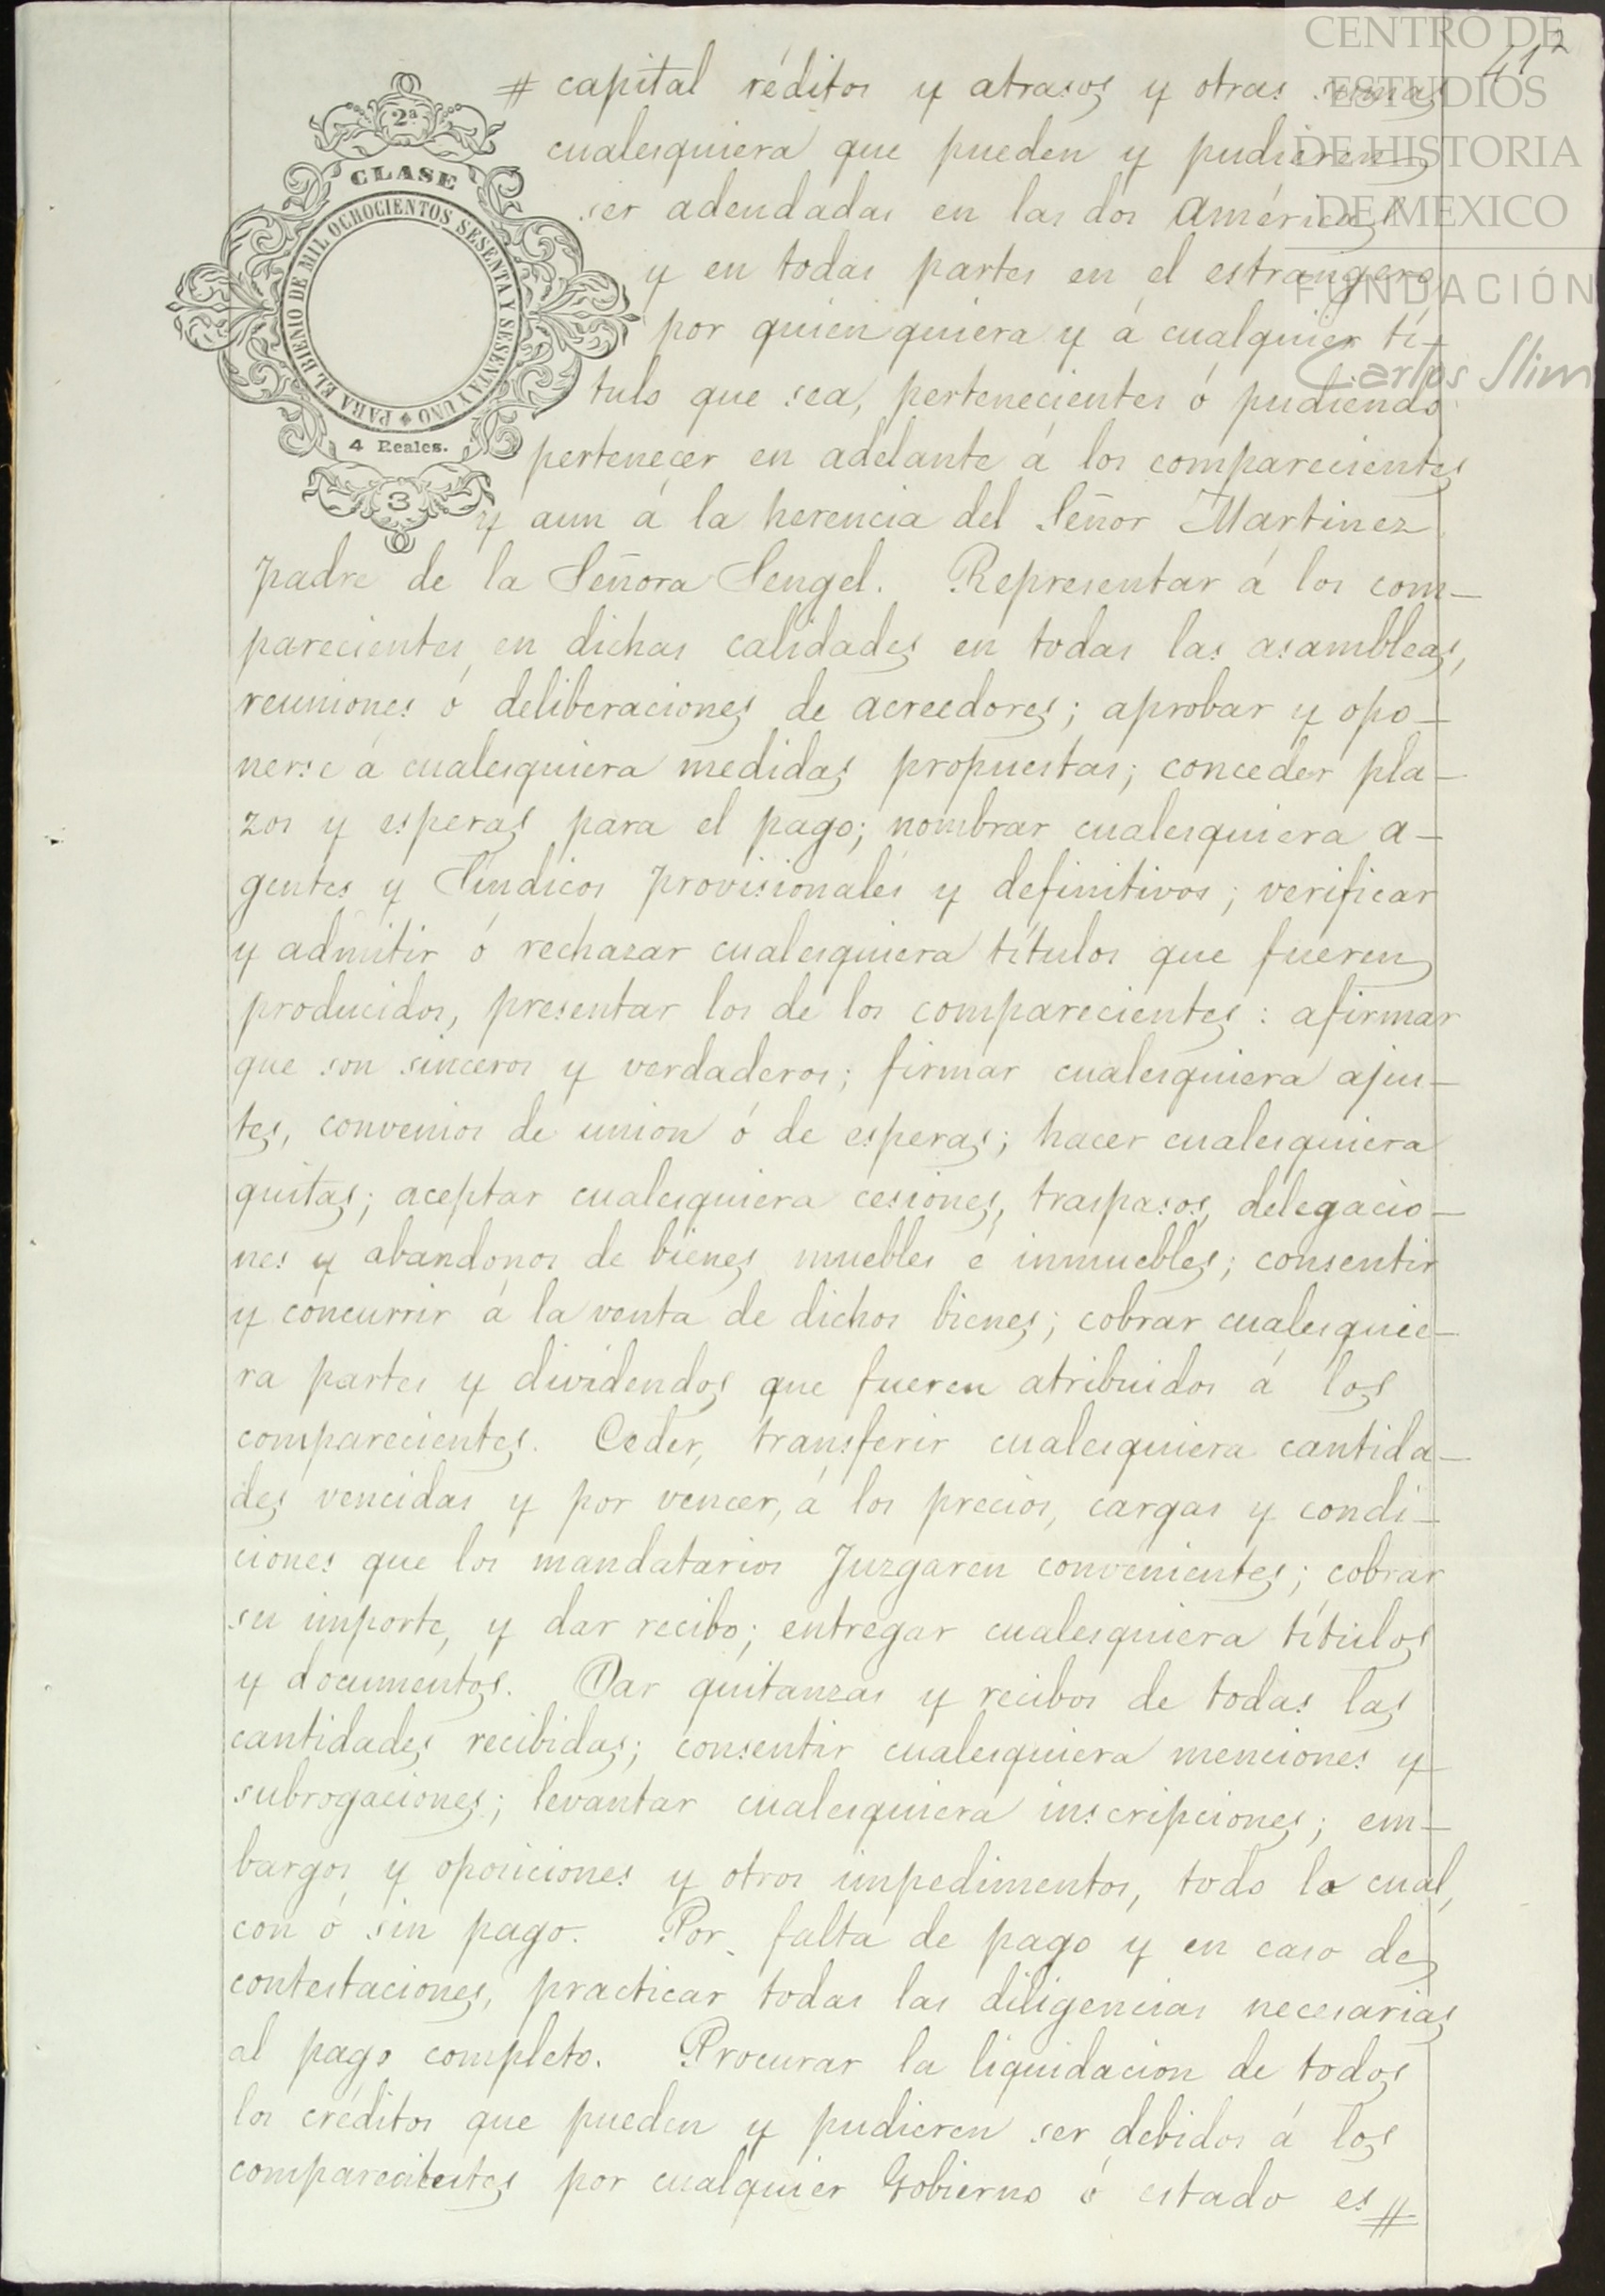 CENTRO DE
ESTUDIOS
DE HISTORIA
DE MEXICO
FUNDACIÓN
Carlos Slim
2ª
CLASE
PARA EL BIENIO DE MIL OCHOCIENTOS SESENTA Y SESENTA Y UNO
4 Reales.
3
# capital réditos y atrasos y otras sumas
cualesquiera que pueden y pudieren
ser adeudadas en las dos Américas
y en todas partes en el estrangero
por quien quiera y á cualquier tí-
tulo que sea, pertenecientes ó pudiendo
pertenecer en adelante á los comparecientes
y aun á la herencia del Señor Martinez
padre de la Señora Sengel. Representar á los com-
parecientes, en dichas calidades en todas las asambleas,
reuniones ó deliberaciones de acreedores; aprobar y opo-
nerse á cualesquiera medidas propuestas; conceder pla-
zos y esperas para el pago; nombrar cualesquiera a-
gentes y Síndicos provisionales y definitivos; verificar
y admitir ó rechazar cualesquiera títulos que fueren
producidos, presentar los de los comparecientes: afirmar
que son sinceros y verdaderos; firmar cualesquiera ajus-
tes, convenios de union ó de esperas; hacer cualesquiera
quitas; aceptar cualesquiera cesiones, traspasos, delegacio-
nes y abandonos de bienes muebles é inmuebles; consentir
y concurrir á la venta de dichos bienes; cobrar cualesquie-
ra partes y dividendos que fueren atribuidos á los
comparecientes. Ceder, transferir cualesquiera cantida-
des vencidas y por vencer, á los precios, cargas y condi-
ciones que los mandatarios Juzgaren convenientes; cobrar
su importe, y dar recibo; entregar cualesquiera títulos
y documentos. Dar quitanzas y recibos de todas las
cantidades recibidas; consentir cualesquiera menciones y
subrogaciones; levantar cualesquiera inscripciones; em-
bargos y oposiciones y otros impedimentos, todo lo cual,
con ó sin pago. Por falta de pago y en caso de
contestaciones, practicar todas las diligencias necesarias
al pago completo. Procurar la liquidacion de todos
los créditos que pueden y pudieren ser debidos á los
comparecientes por cualquier Gobierno ó estado es#